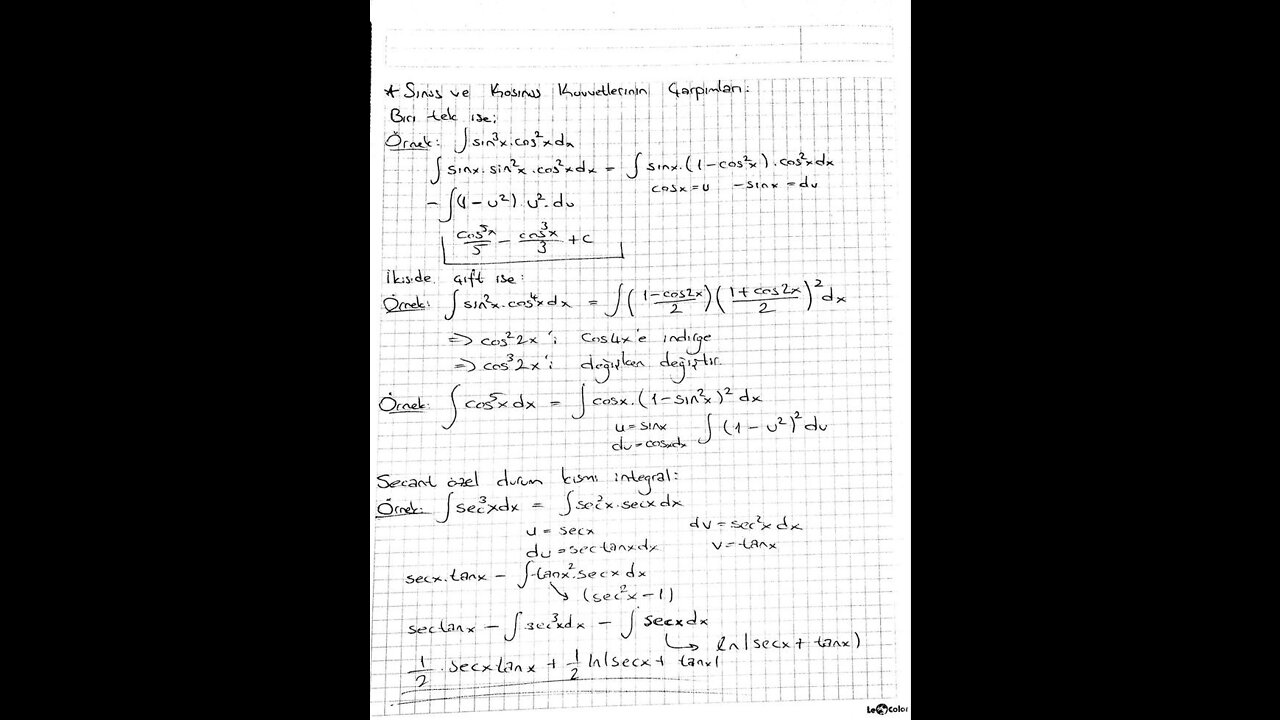 * Sinüs ve Kosinüs Kuvvetlerinin Çarpımları:
Biri tek ise:
Örnek: ∫ sin³x.cos²x dx
∫ sinx.sin²x.cos²x dx = ∫ sinx.(1-cos²x).cos²x dx
cosx = u -sinx = du
- ∫(1-u²).u².du
cos⁵x/5 - cos³x/3 + c
İkiside çift ise:
Örnek: ∫ sin²x.cos⁴x dx = ∫ ((1-cos2x)/2) ((1+cos2x)/2)² dx
=> cos²2x 'i cos4x'e indirge
=> cos³2x 'i değişken değiştir.
Örnek: ∫ cos⁵x dx = ∫ cosx.(1-sin²x)² dx
u = sinx ∫ (1-u²)² du
du = cosxdx
Secant özel durum kısmi integral:
Örnek: ∫ sec³x dx = ∫ sec²x.secx dx
u = secx dv = sec²x dx
du = sectanxdx v = tanx
secx.tanx - ∫ tanx².secx dx
↘ (sec²x-1)
sectanx - ∫ sec³xdx - ∫ secxdx
↳ ln|secx + tanx)
1/2 . secxtanx + 1/2 ln|secx + tanx|
LeColor